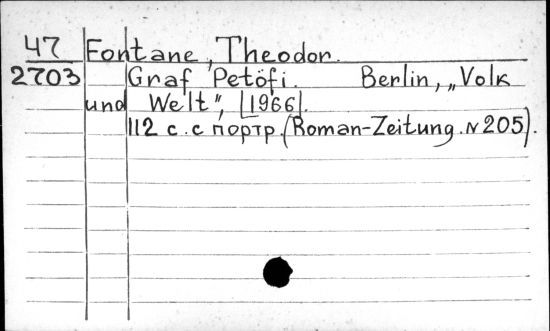 47 Fontane, Theodor.
2703 Graf Petöfi. Berlin, „Volk
und Welt", [1966].
112 с. с портр. (Roman-Zeitung. N 205).